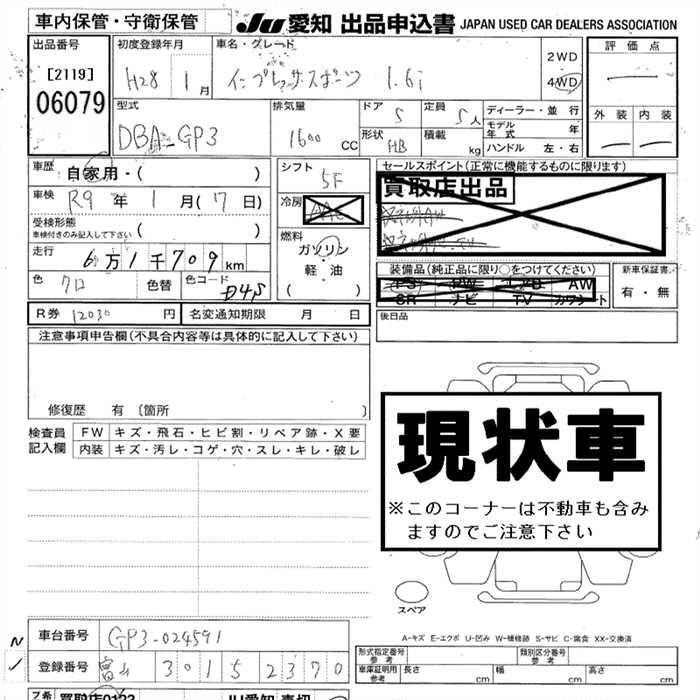 車内保管・守衛保管 JU愛知 出品申込書 JAPAN USED CAR DEALERS ASSOCIATION
出品番号 初度登録年月 車名・グレード 2WD 評価点
[2119] H28 1月 インプレッサスポーツ 1.6i 4WD
06079 型式 排気量 ドア 定員 ディーラー・並行 外装 内装
DBA-GP3 1600CC 5 5人 モデル年式 年
形状 HB 積載 kg ハンドル 左・右
車歴 自家用・( ) シフト 5F セールスポイント(正常に機能するものに限ります)
車検 R9年1月(7日) 冷房 AAC 買取店出品
受検形態
車検付きのみ記入して下さい 燃料
走行 6万1千709km ガソリン
軽油
( ) 装備品(純正品に限り○をつけてください) 新車保証書
色 クロ 色替 色コード D4S PS PW エアB AW 有・無
SR ナビ TV カワシート
R券 12030円 名変通知期限 月 日 後日品
注意事項申告欄(不具合内容等は具体的に記入して下さい)
修復歴 有〔箇所 〕
検査員記入欄 FW キズ・飛石・ヒビ割・リペア跡・X要
内装 キズ・汚レ・コゲ・穴・スレ・キレ・破レ
現状車
※このコーナーは不動車も含み
ますのでご注意下さい
スペア
A-キズ E-エクボ U-凹み W-補修跡 S-サビ C-腐食 XX-交換済
車台番号 GP3-024591
登録番号 富山 301 5 2370
形式指定番号 参考 類別区分番号 参考
車庫証明用 参考 長さ cm 幅 cm 高さ cm
買取店0123 JU愛知